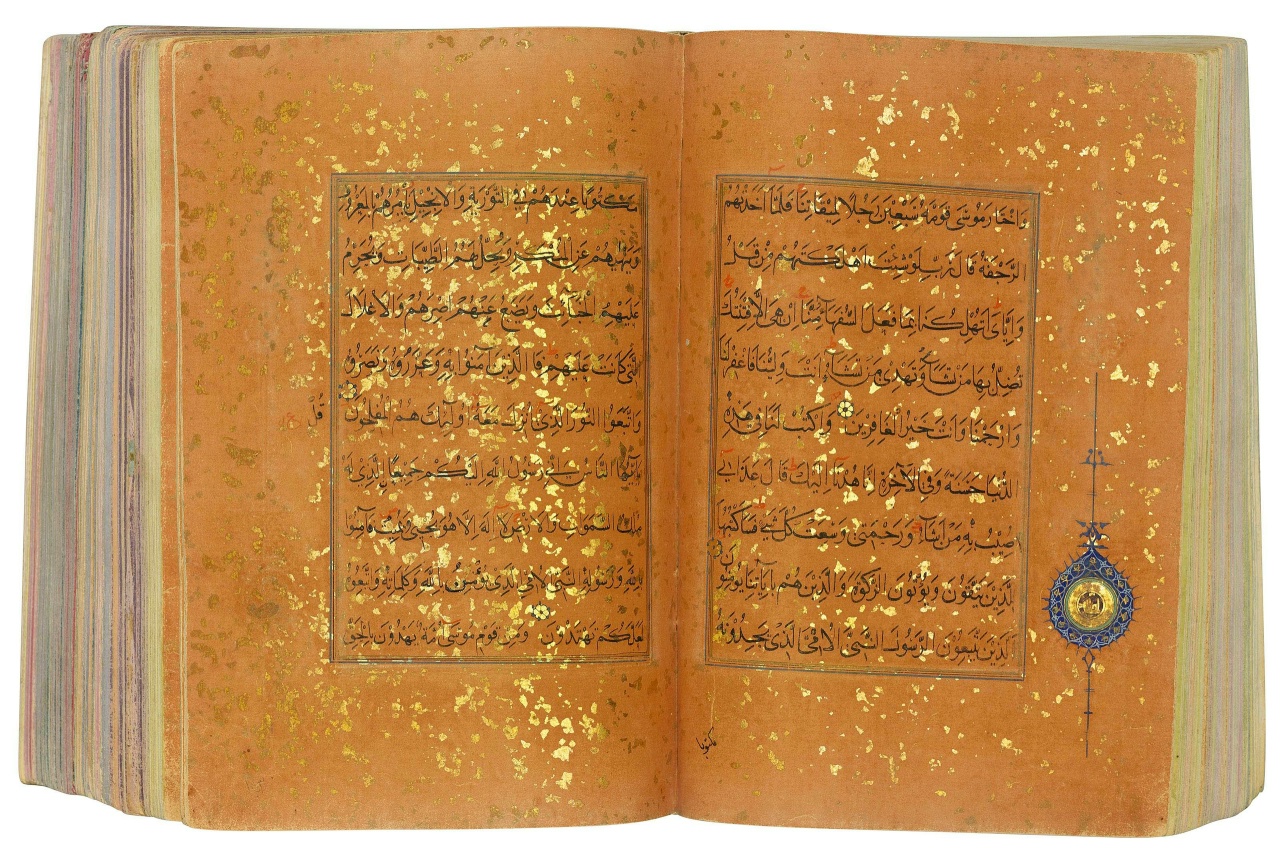 وَاخْتَارَ مُوسَى قَوْمَهُ سَبْعِينَ رَجُلًا لِمِيقَاتِنَا فَلَمَّا أَخَذَتْهُمُ
الرَّجْفَةُ قَالَ رَبِّ لَوْ شِئْتَ أَهْلَكْتَهُمْ مِنْ قَبْلُ
وَإِيَّايَ أَتُهْلِكُنَا بِمَا فَعَلَ السُّفَهَاءُ مِنَّا إِنْ هِيَ إِلَّا فِتْنَتُكَ
تُضِلُّ بِهَا مَنْ تَشَاءُ وَتَهْدِي مَنْ تَشَاءُ أَنْتَ وَلِيُّنَا فَاغْفِرْ لَنَا
وَارْحَمْنَا وَأَنْتَ خَيْرُ الْغَافِرِينَ وَاكْتُبْ لَنَا فِي هَذِهِ
الدُّنْيَا حَسَنَةً وَفِي الْآخِرَةِ إِنَّا هُدْنَا إِلَيْكَ قَالَ عَذَابِي
أُصِيبُ بِهِ مَنْ أَشَاءُ وَرَحْمَتِي وَسِعَتْ كُلَّ شَيْءٍ فَسَأَكْتُبُهَا
لِلَّذِينَ يَتَّقُونَ وَيُؤْتُونَ الزَّكَوةَ وَالَّذِينَ هُمْ بِآيَاتِنَا يُؤْمِنُونَ
الَّذِينَ يَتَّبِعُونَ الرَّسُولَ النَّبِيَّ الْأُمِّيَّ الَّذِي يَجِدُونَهُ
مكتوبا
مَكْتُوبًا عِنْدَهُمْ فِي التَّوْرَيةِ وَالْإِنْجِيلِ يَأْمُرُهُمْ بِالْمَعْرُوفِ
وَيَنْهَيهُمْ عَنِ الْمُنْكَرِ وَيُحِلُّ لَهُمُ الطَّيِّبَاتِ وَيُحَرِّمُ
عَلَيْهِمُ الْخَبَائِثَ وَيَضَعُ عَنْهُمْ إِصْرَهُمْ وَالْأَغْلَالَ
الَّتِي كَانَتْ عَلَيْهِمْ فَالَّذِينَ آمَنُوا بِهِ وَعَزَّرُوهُ وَنَصَرُوهُ
وَاتَّبَعُوا النُّورَ الَّذِي أُنْزِلَ مَعَهُ أُولَئِكَ هُمُ الْمُفْلِحُونَ قُلْ
يَا أَيُّهَا النَّاسُ إِنِّي رَسُولُ اللَّهِ إِلَيْكُمْ جَمِيعًا الَّذِي لَهُ
مُلْكُ السَّمَوَاتِ وَالْأَرْضِ لَا إِلَهَ إِلَّا هُوَ يُحْيِي وَيُمِيتُ فَآمِنُوا
بِاللَّهِ وَرَسُولِهِ النَّبِيِّ الْأُمِّيِّ الَّذِي يُؤْمِنُ بِاللَّهِ وَكَلِمَاتِهِ وَاتَّبِعُوهُ
لَعَلَّكُمْ تَهْتَدُونَ وَمِنْ قَوْمِ مُوسَى أُمَّةٌ يَهْدُونَ بِالْحَقِّ